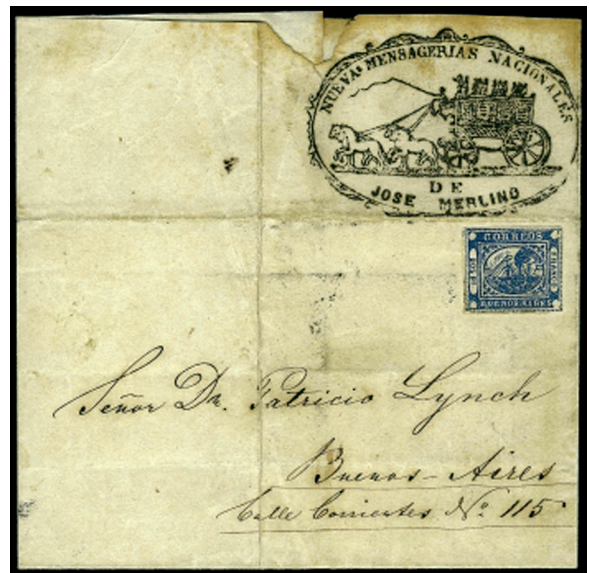 NUEVAS MENSAGERIAS NACIONALES
DE
JOSE MERLINO
CORREOS
BUENOS AIRES
Señor Dn. Patricio Lynch
Buenos-Aires
Calle Corrientes No. 115